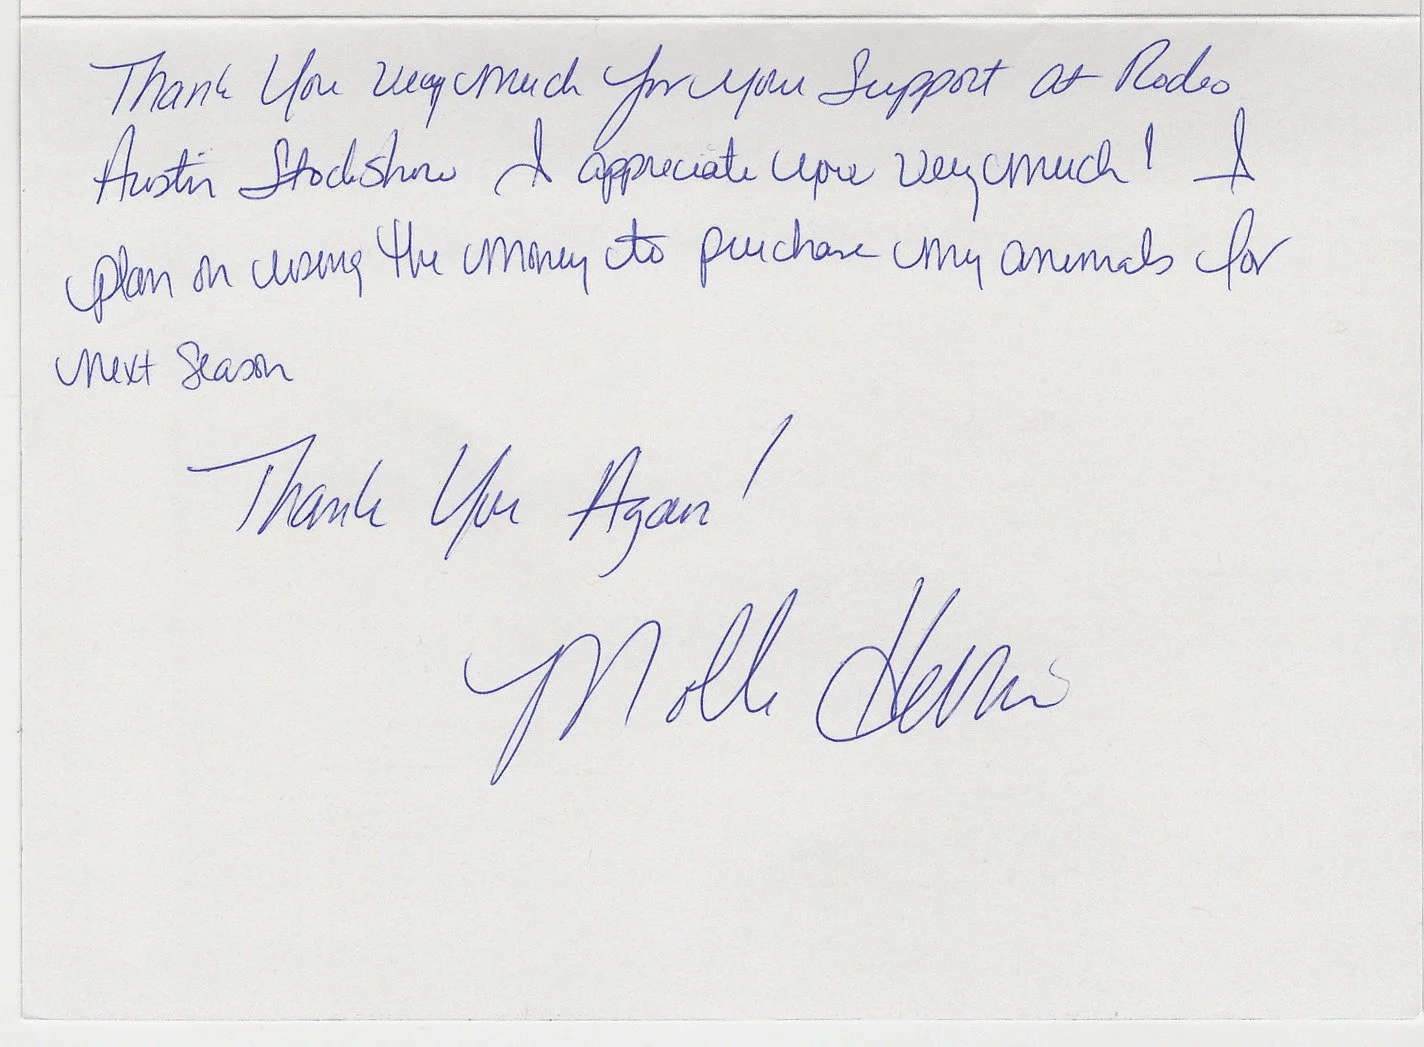 Thank You very much for your Support at Rodeo
Austin Stockshow I appreciate you very much! I
plan on using the money to purchase my animals for
next Season
Thank You Again!